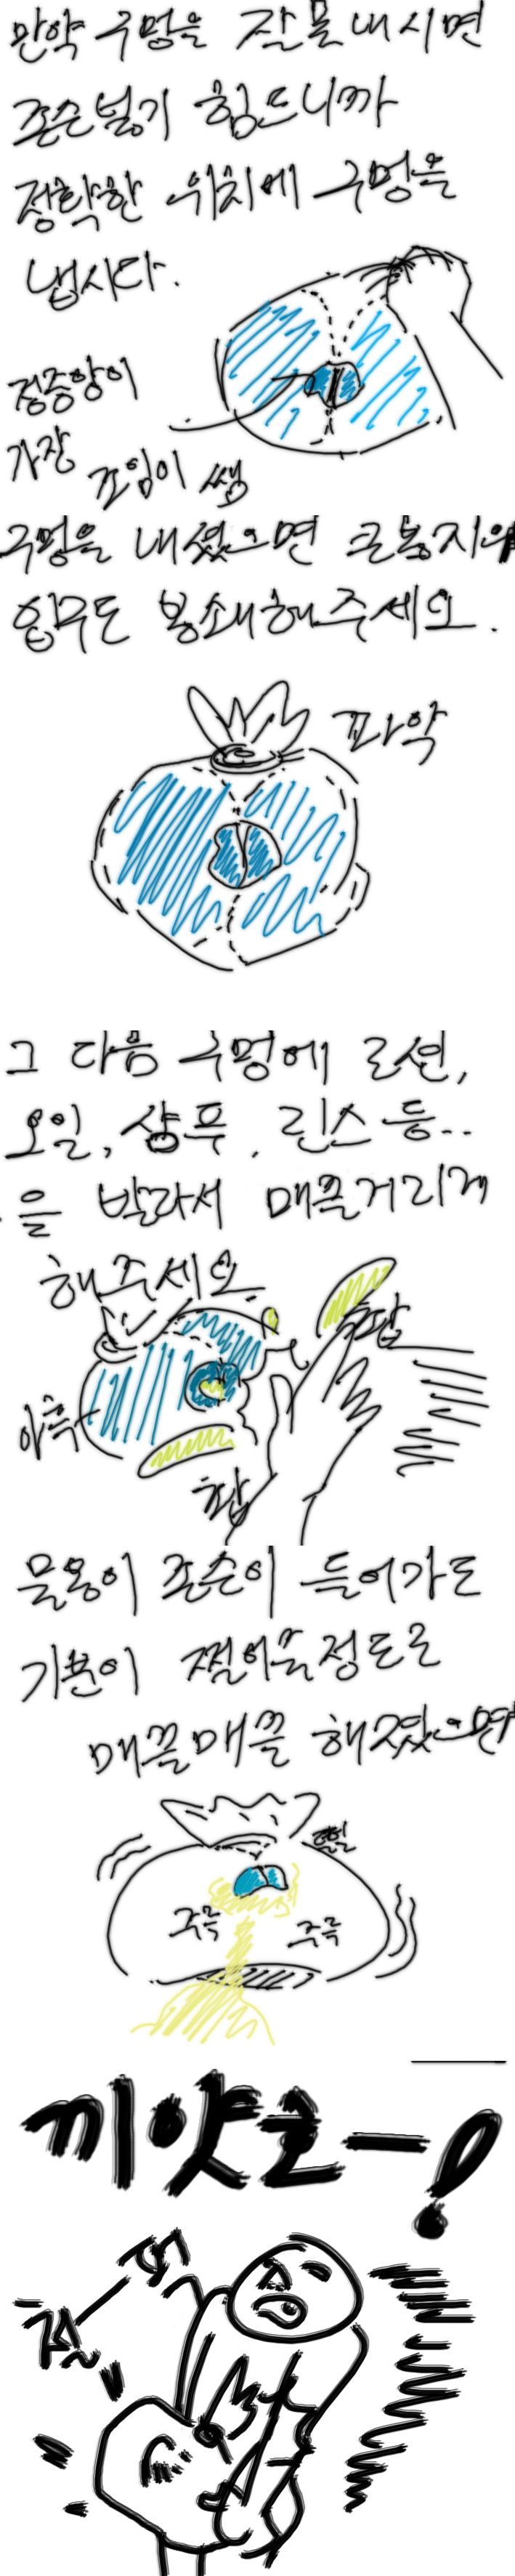 만약 구멍을 잘못내시면
존슨넣기 힘드니까
정확한 위치에 구멍을
냅시다.
정중앙이
가장
조임이 쌤
구멍을 내셨으면 큰봉지의
입구도 봉쇄해주세요.
파악
그 다음 구멍에 로션,
오일, 샴푸, 린스 등..
을 발라서 매끌거리게
해주세요
찹
아흑
찹
물웅이 존슨이 들어가도
기분이 쩔어줄정도로
매끌매끌 해졌으면
헐헐
주륵
주륵
끼얏호-!